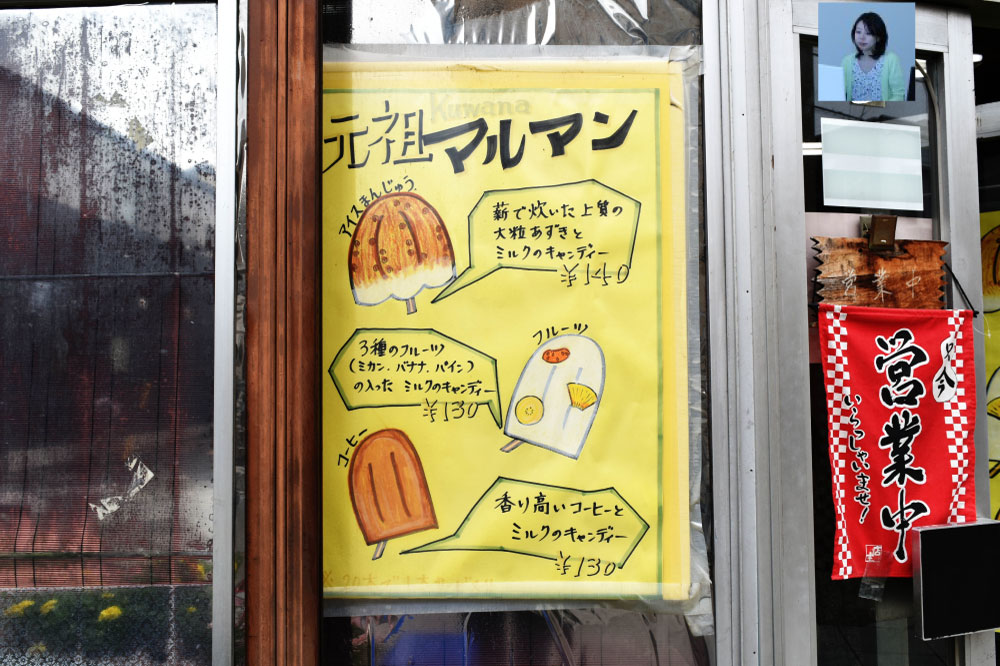 Kuwana
元祖マルマン
アイスまんじゅう
薪で炊いた上質の
大粒あずきと
ミルクのキャンディー
¥150
フルーツ
3種のフルーツ
(ミカン、バナナ、パイン)
の入った ミルクのキャンディー
¥130
コーヒー
香り高いコーヒーと
ミルクのキャンディー
¥130
営業中
営業中
いらっしゃいませ!